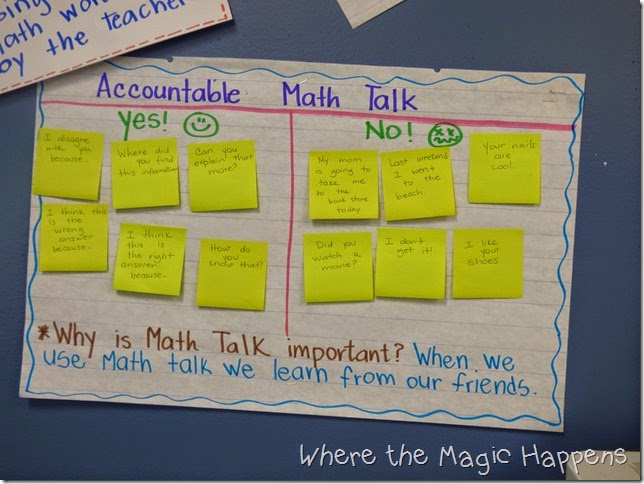 math wor
by the teacher
Accountable Math Talk
Yes!
No!
I disagree
with you
because...
Where did
you find
this information
Can you
explain that
more?
I think this
is the
wrong
answer
because...
I think
this is
the right
answer
because...
How do
you
know that?
My mom
is going to
take me
to the
book store
today
Last weekend
I went
to the
beach.
Your nails
are
cool.
Did you
watch a
movie?
I don't
get it!
I like
your
shoes.
*Why is Math Talk important? When we
use Math talk we learn from our friends.
Where the Magic Happens